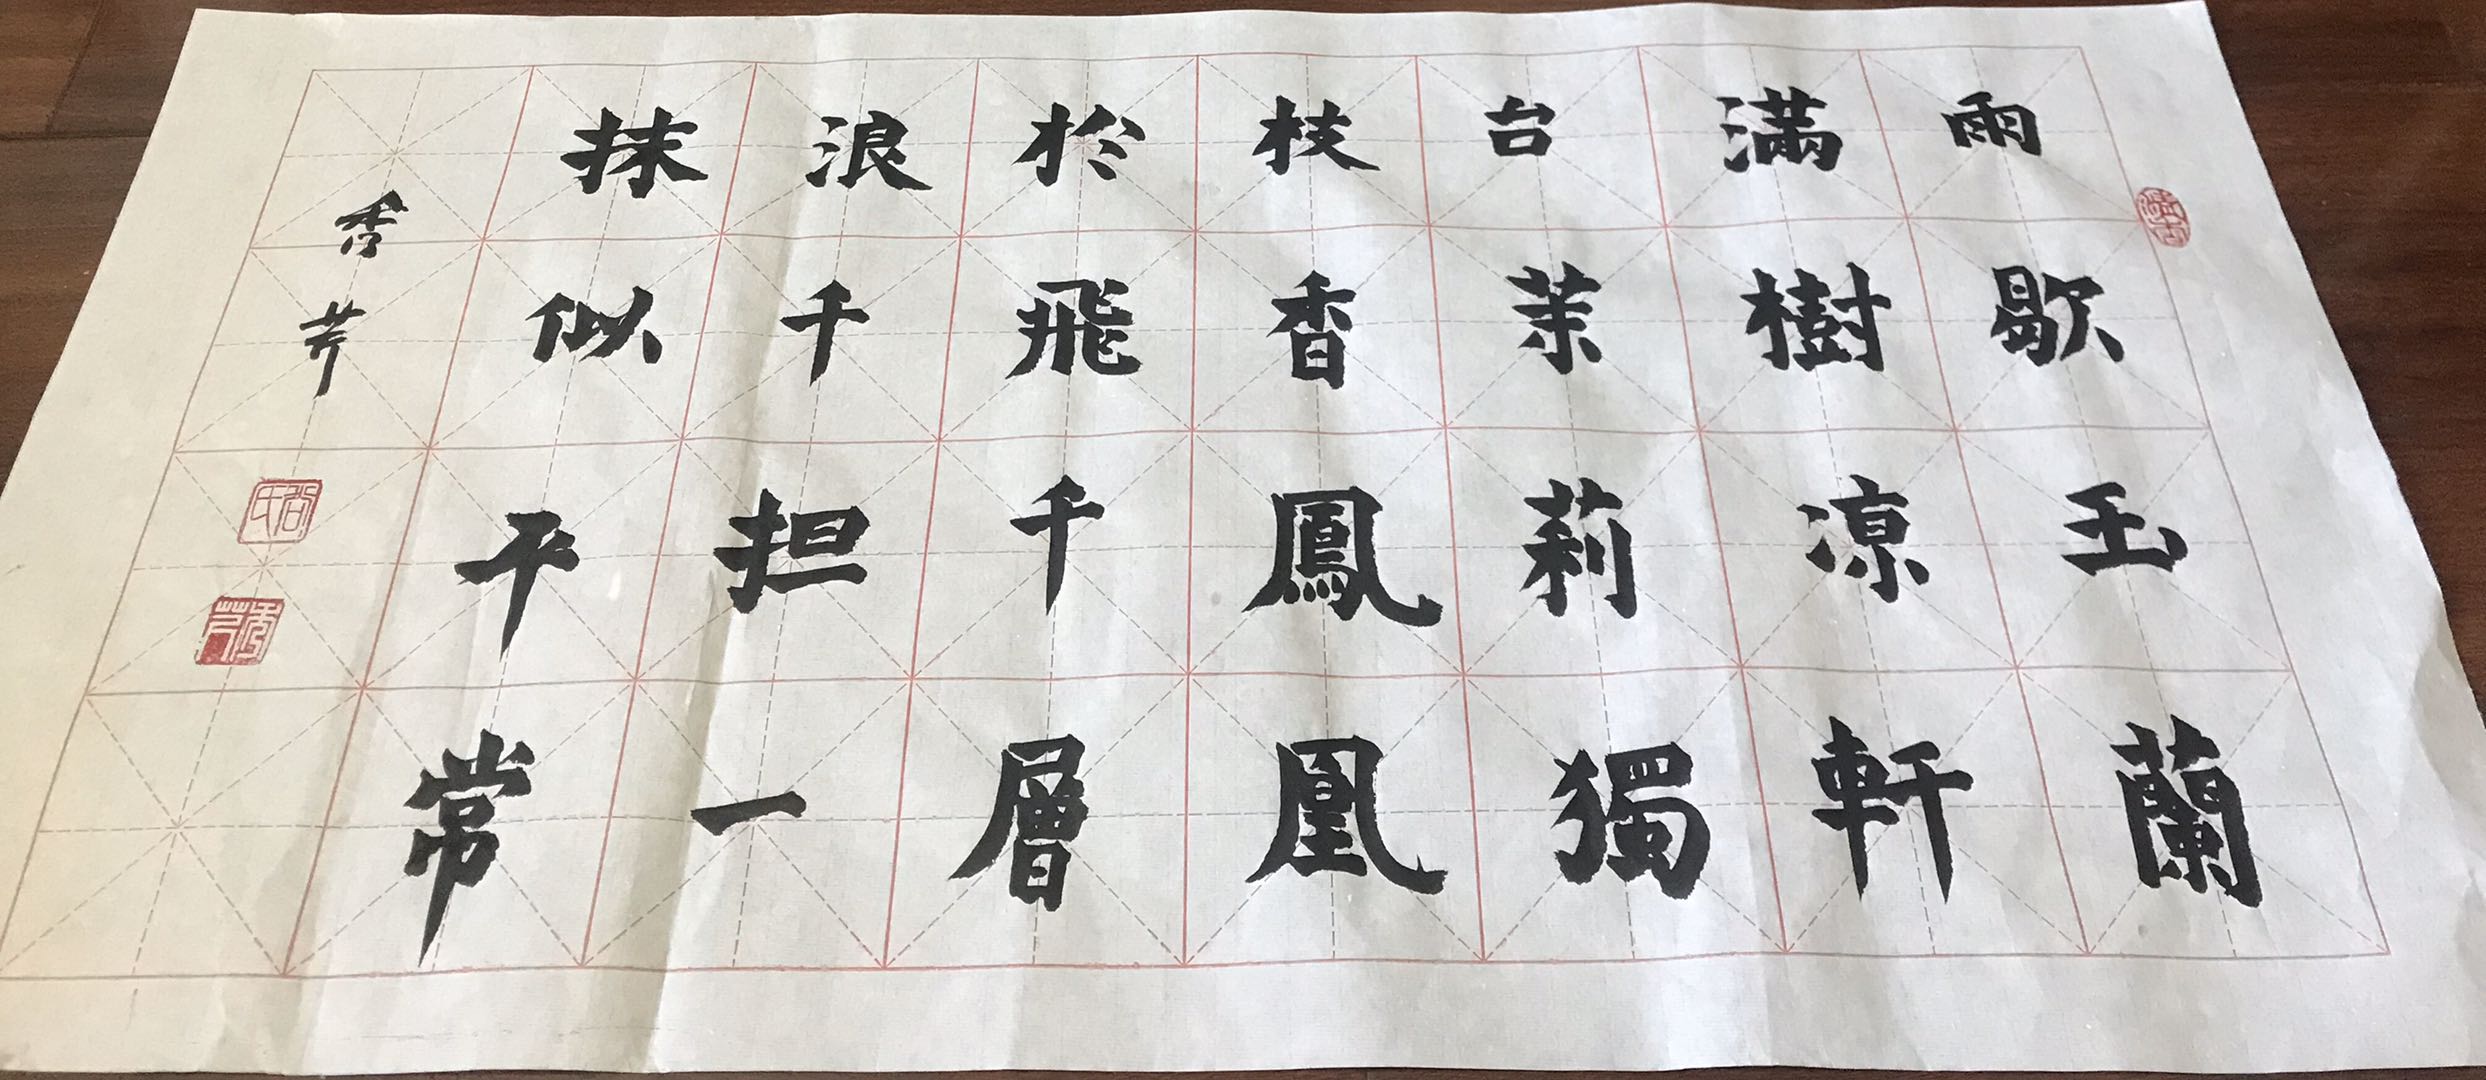 雨歇玉蘭
滿樹凉軒
台茉莉獨
枝香鳳凰
於飛千層
浪千担一
抹似平常
秀芹
秀芹